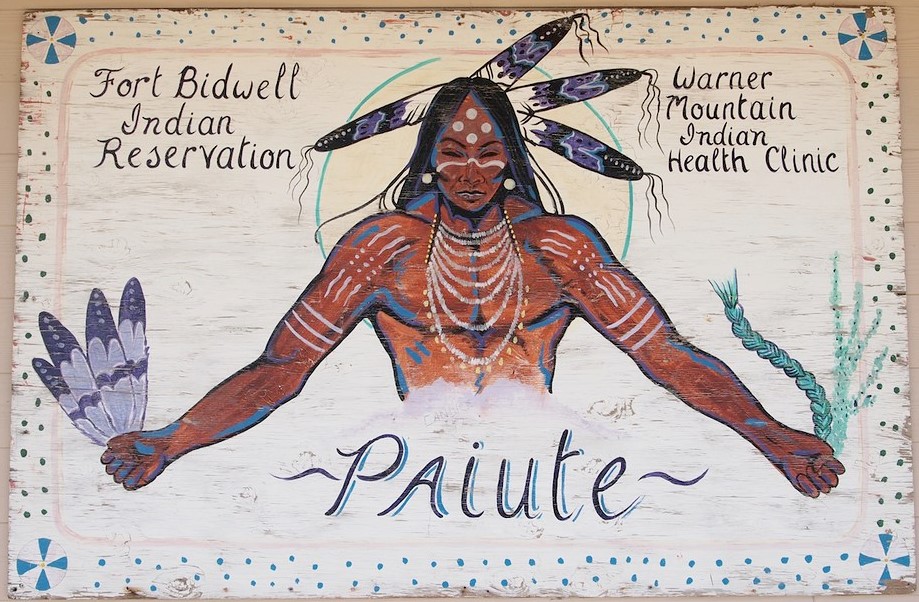 Fort Bidwell
Indian
Reservation
Warner
Mountain
Indian
Health Clinic
~Paiute~